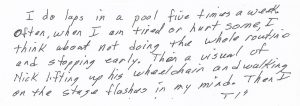 I do laps in a pool five times a week
Often, when I am tired or hurt some, I
think about not doing the whole routine
and stopping early. Then a visual of
Nick lifting up his wheelchair and walking
on the stage flashes in my mind. Then I